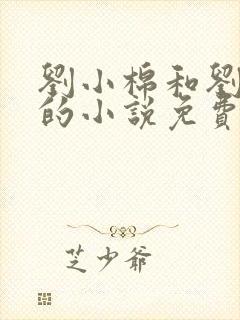 劉小棉和劉
的小說免費
芝少爺